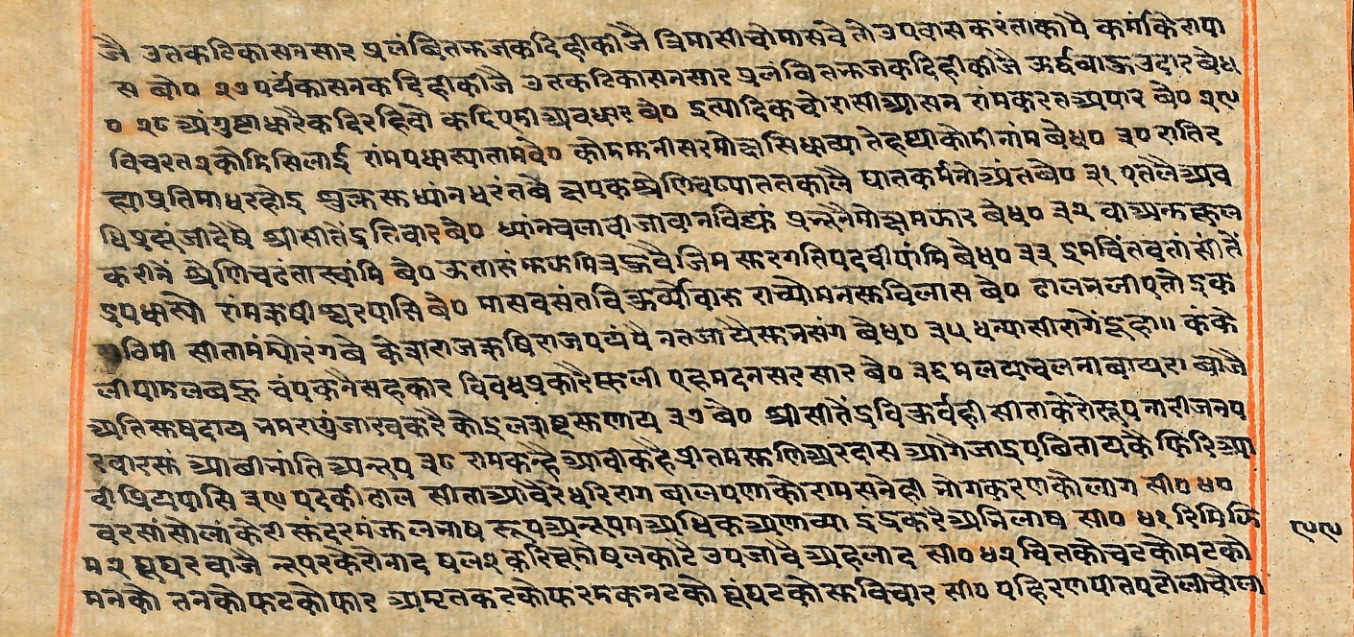 जै उतकटिकासनसार प्रलंबितफजकदिहीकीजै त्रिमासीचोमासवे तो उपवास करंताकोपै कमंकिरापा
स बो० २७ पर्यंकासनक दिहीकीजै उतकटिकासनसार प्रलंबितफजकदिहीकीजै ऊर्द्दबाऊ उदार बेध
० २८ अंगुष्टाधारैकदिरहिवौ कदिएमीअवधार बे० इत्यादिकचोरासीआसन रांमकरतअपार बे० २९
विचरत२कोमिसिलाई रांमपधास्यातामबे० कोमफनीसरमोक्षसिधाव्या तेहथीकोमीनांम बेध० ३० रातिर
ह्याप्रतिमाधरहोइ शुक्लध्यांनधरंतबे क्षपकश्रेणिचढ्याततकालै घातकर्मनोअंतबे० ३१ एतलैअव
धिप्रयुंजीदेषे श्रीसीतेंइतिवारबे० ध्यांनचलावीजावानविद्युं प्रन्रनैमोक्षमफार बेध० ३२ वाअनकूल
करीनें श्रेणिचढंतास्वांमि बे० ऊतारुंफफमित्रऊवै जिम सुरगतिपदवीपांमि बेध० ३३ इमचिंतवतां सीतें
इपधास्यो रांमऋषीश्वरपासि बे० मासवसंतविकुर्व्योवारू राच्योमनसुविलास बे० ढालनलीएतोइक
विमी सीतामंझ्योरंगबे केवाराजऋषिराजपयंपै नतजायेसुनसंग बेध० ३५ धन्यासीरागेंइहा॥ कंके
लीपामलबऊ चंपकनैसहकार विवधप्रकारैफूली एहमदनसरसार बे० ३६ मलयाचलनाबायरा बाजै
अतिसुषदाय नमरागुंजारवकरै कोइलशब्दसुणाय ३७ बे० श्रीसीतेंइविकुर्वही सीताकेरोरूप नारीजनप
रवारसुं आवीनांति अनूप ३८ रामकन्है आवीकहै प्रीतमसुणिअरदास आगैजाइपबितायके फिरिआ
वीप्रियपासि ३९ पदकीढाल सीताआवैरेधरिराग बालपणाकोरामसनेही नोगकरणकोलाग सी० ४०
वरसांसोलांकेरी सुंदरमंऊलनाष रूपअनूपमअधिकअणाव्या इंइकरैअनिलाष सी० ४१ रिमिफि
म२ घूघरवाजै नूपरकैरोनाद षल२करिचूमीषलकाटे उपजावेअहलाद सी० ४२ चितकोचटकोमटको
मनको तनकोफटकोफार अमृतकटकोफरमकनटको घूंघटकोसुविचार सी० पहिरणपीतपटोलीचोली
९९